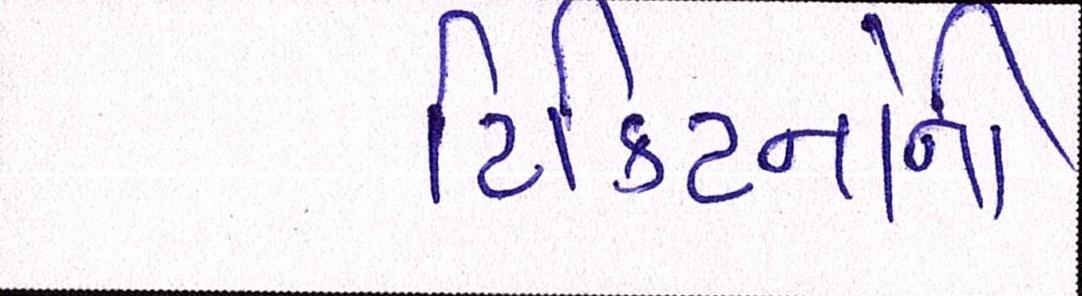 ટિકિટનોની